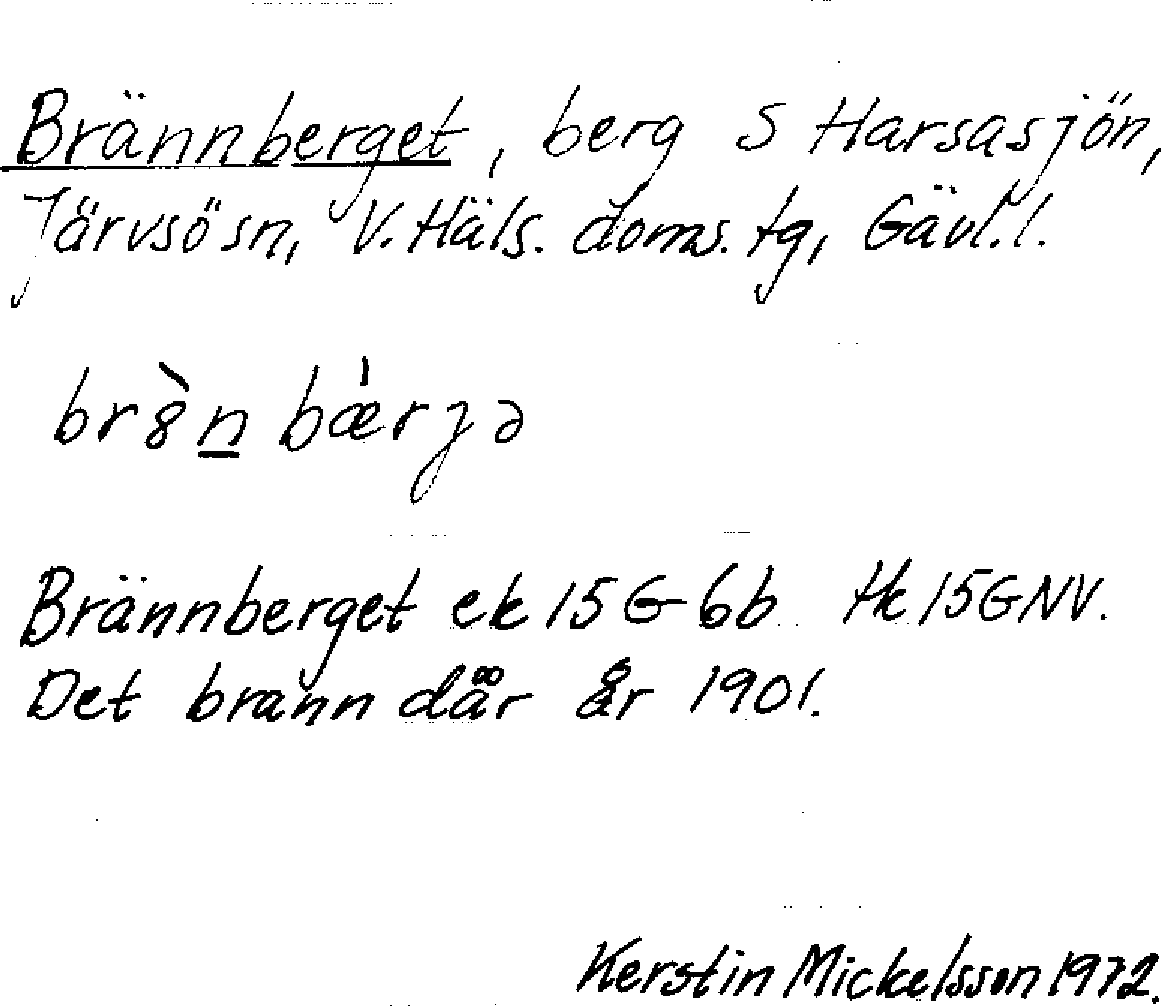 Brännberget, berg S Harsasjön,
Järvsö sn, V. Häls. doms. tg, Gävl. l.
br8̀n bæ̀rȷə
Brännberget ek 15 G 6b Tk 15G NV.
Det brann där år 1901.
Kerstin Mickelsson 1972.